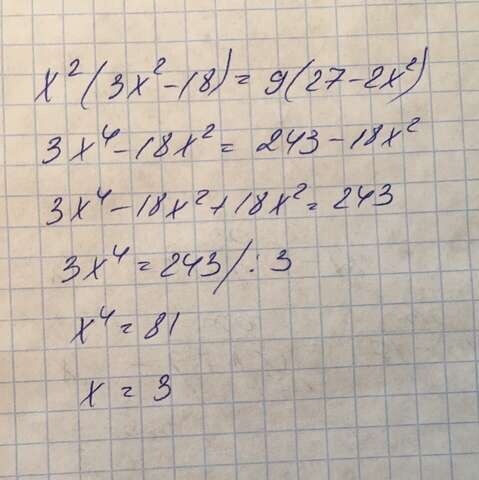 x²(3x²-18)=9(27-2x²)
3x⁴-18x²=243-18x²
3x⁴-18x²+18x²=243
3x⁴=243/:3
x⁴=81
x=3